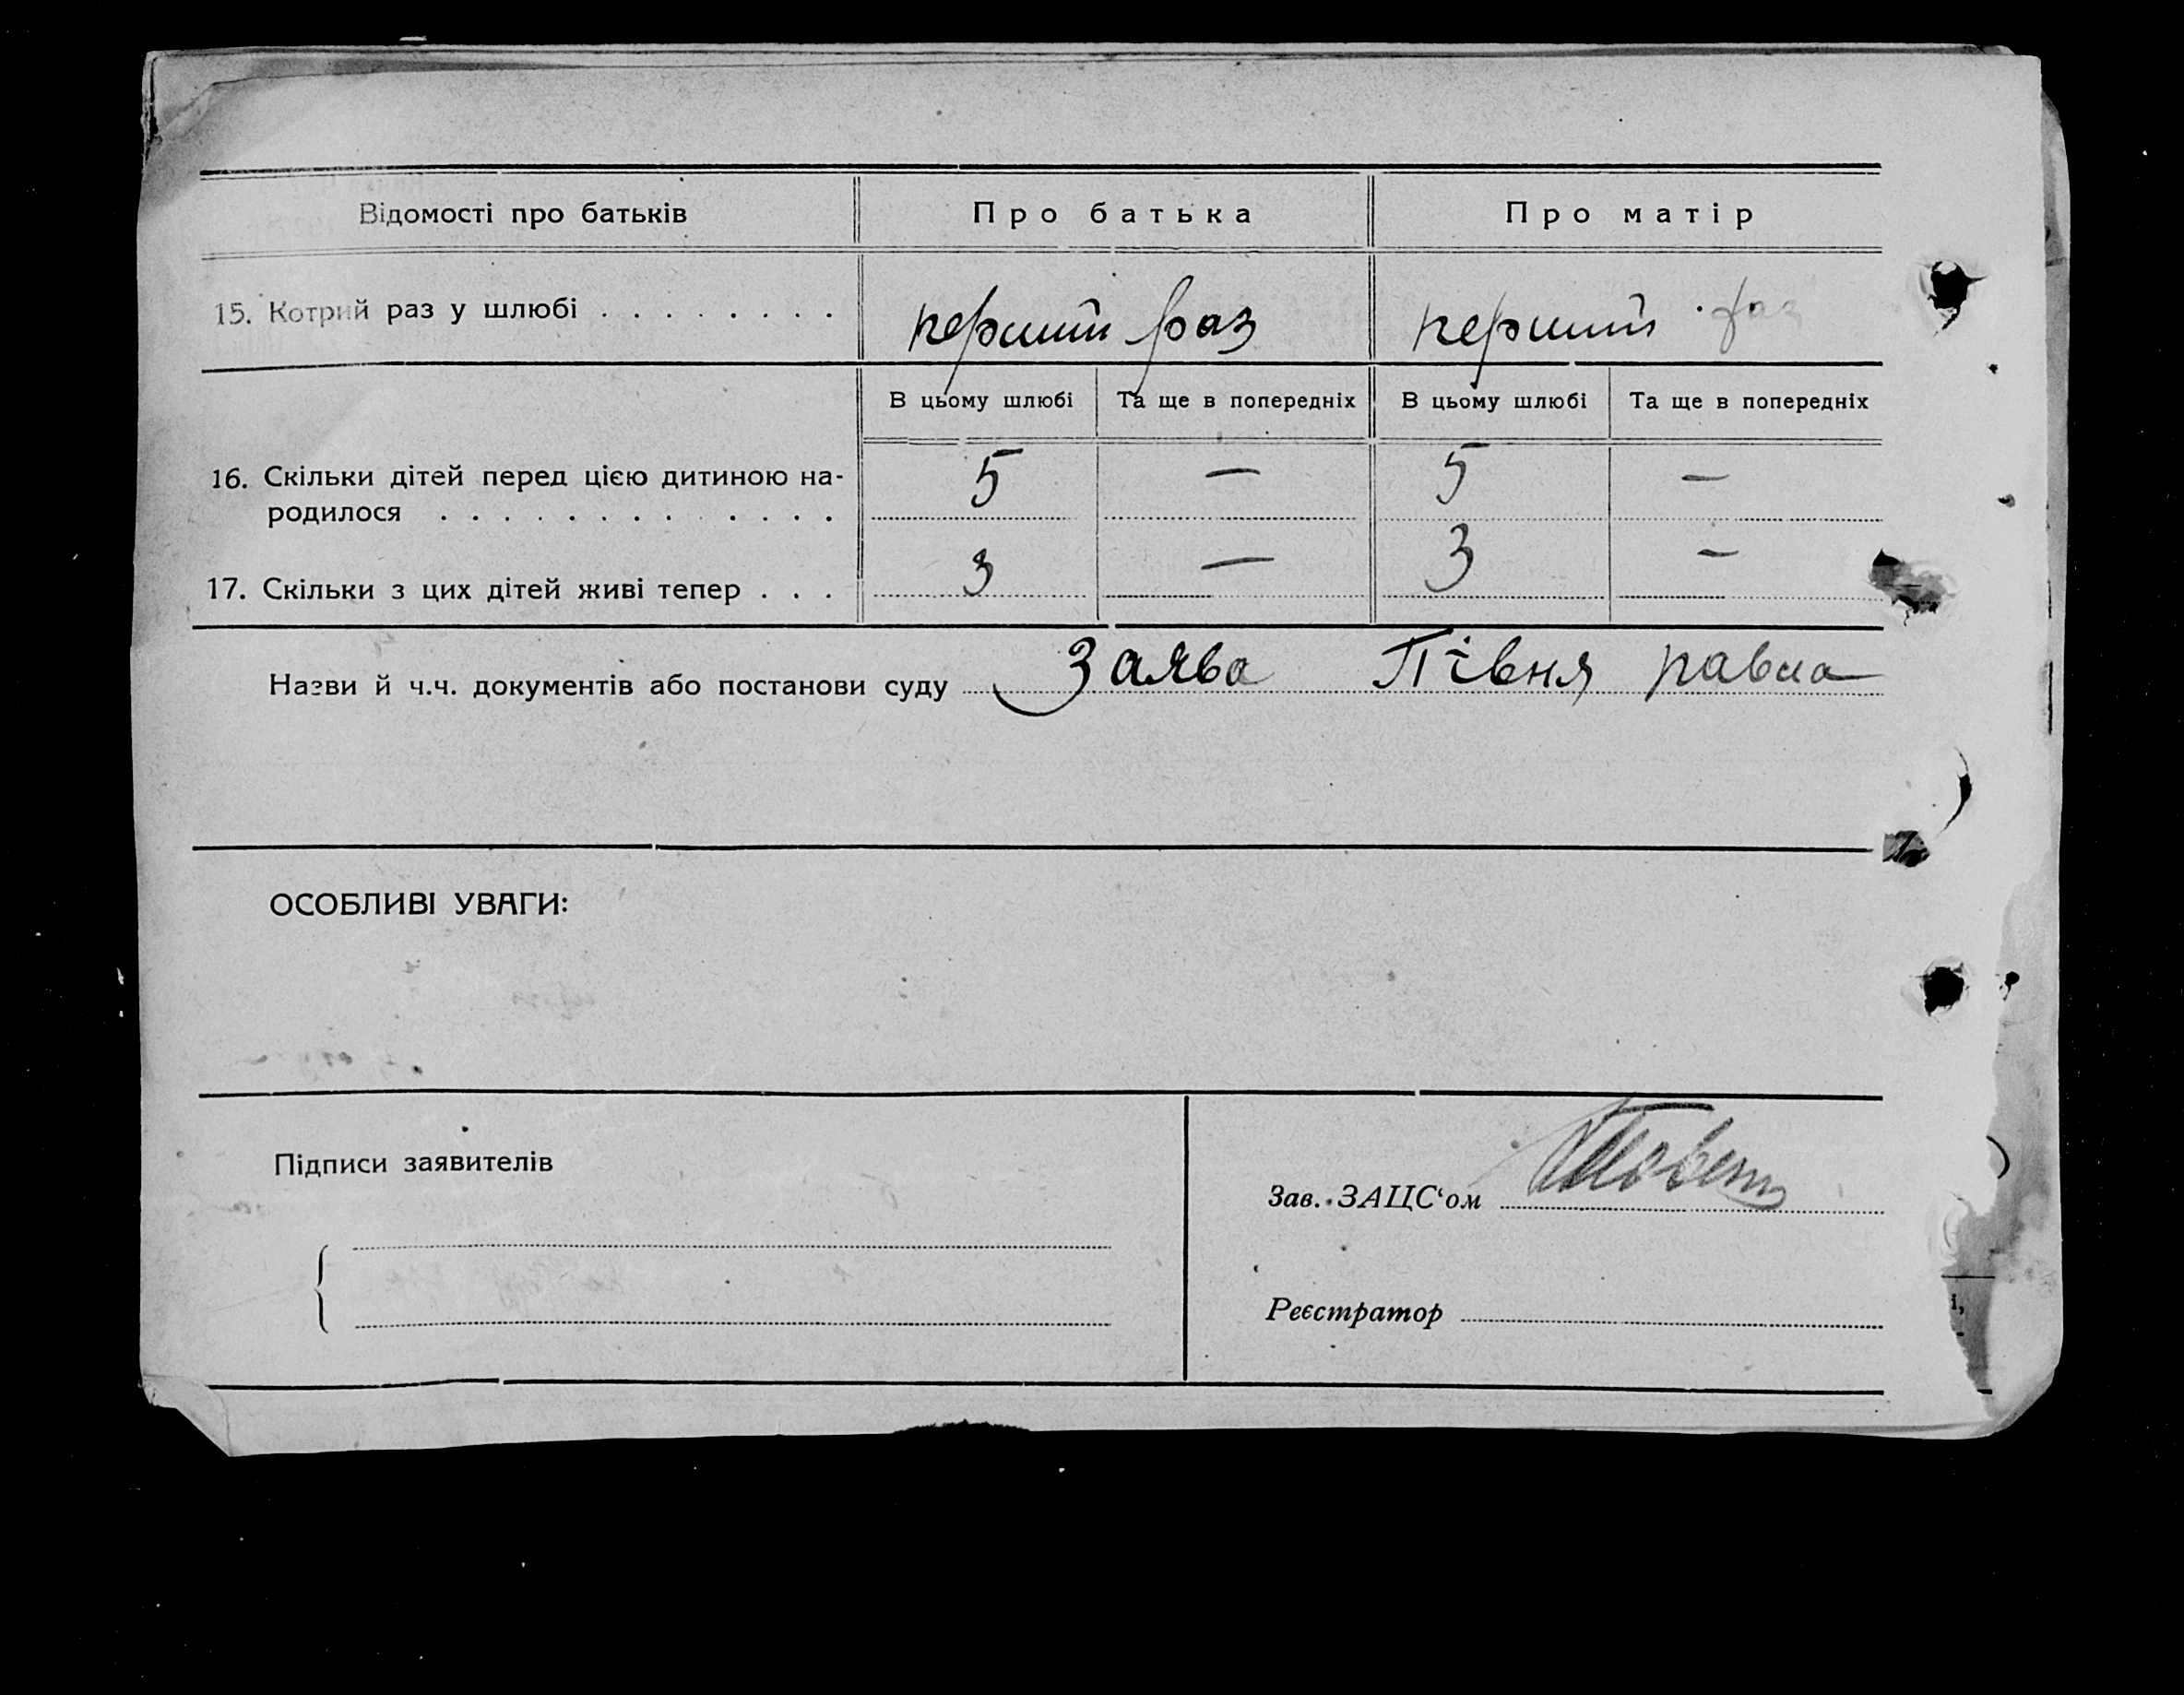 Відомості про батьків Про батька Про матір
15. Котрий раз у шлюбі . . . . . . . . перший раз перший раз
В цьому шлюбі Та ще в попередніх В цьому шлюбі Та ще в попередніх
16. Скільки дітей перед цією дитиною на- 5 — 5 —
родилося . . . . . . . . . . . . .
17. Скільки з цих дітей живі тепер . . . 3 — 3 —
Назви й ч.ч. документів або постанови суду Заява Півня павла
ОСОБЛИВІ УВАГИ:
Підписи заявителів
Зав. ЗАЦС‘ом
Реєстратор